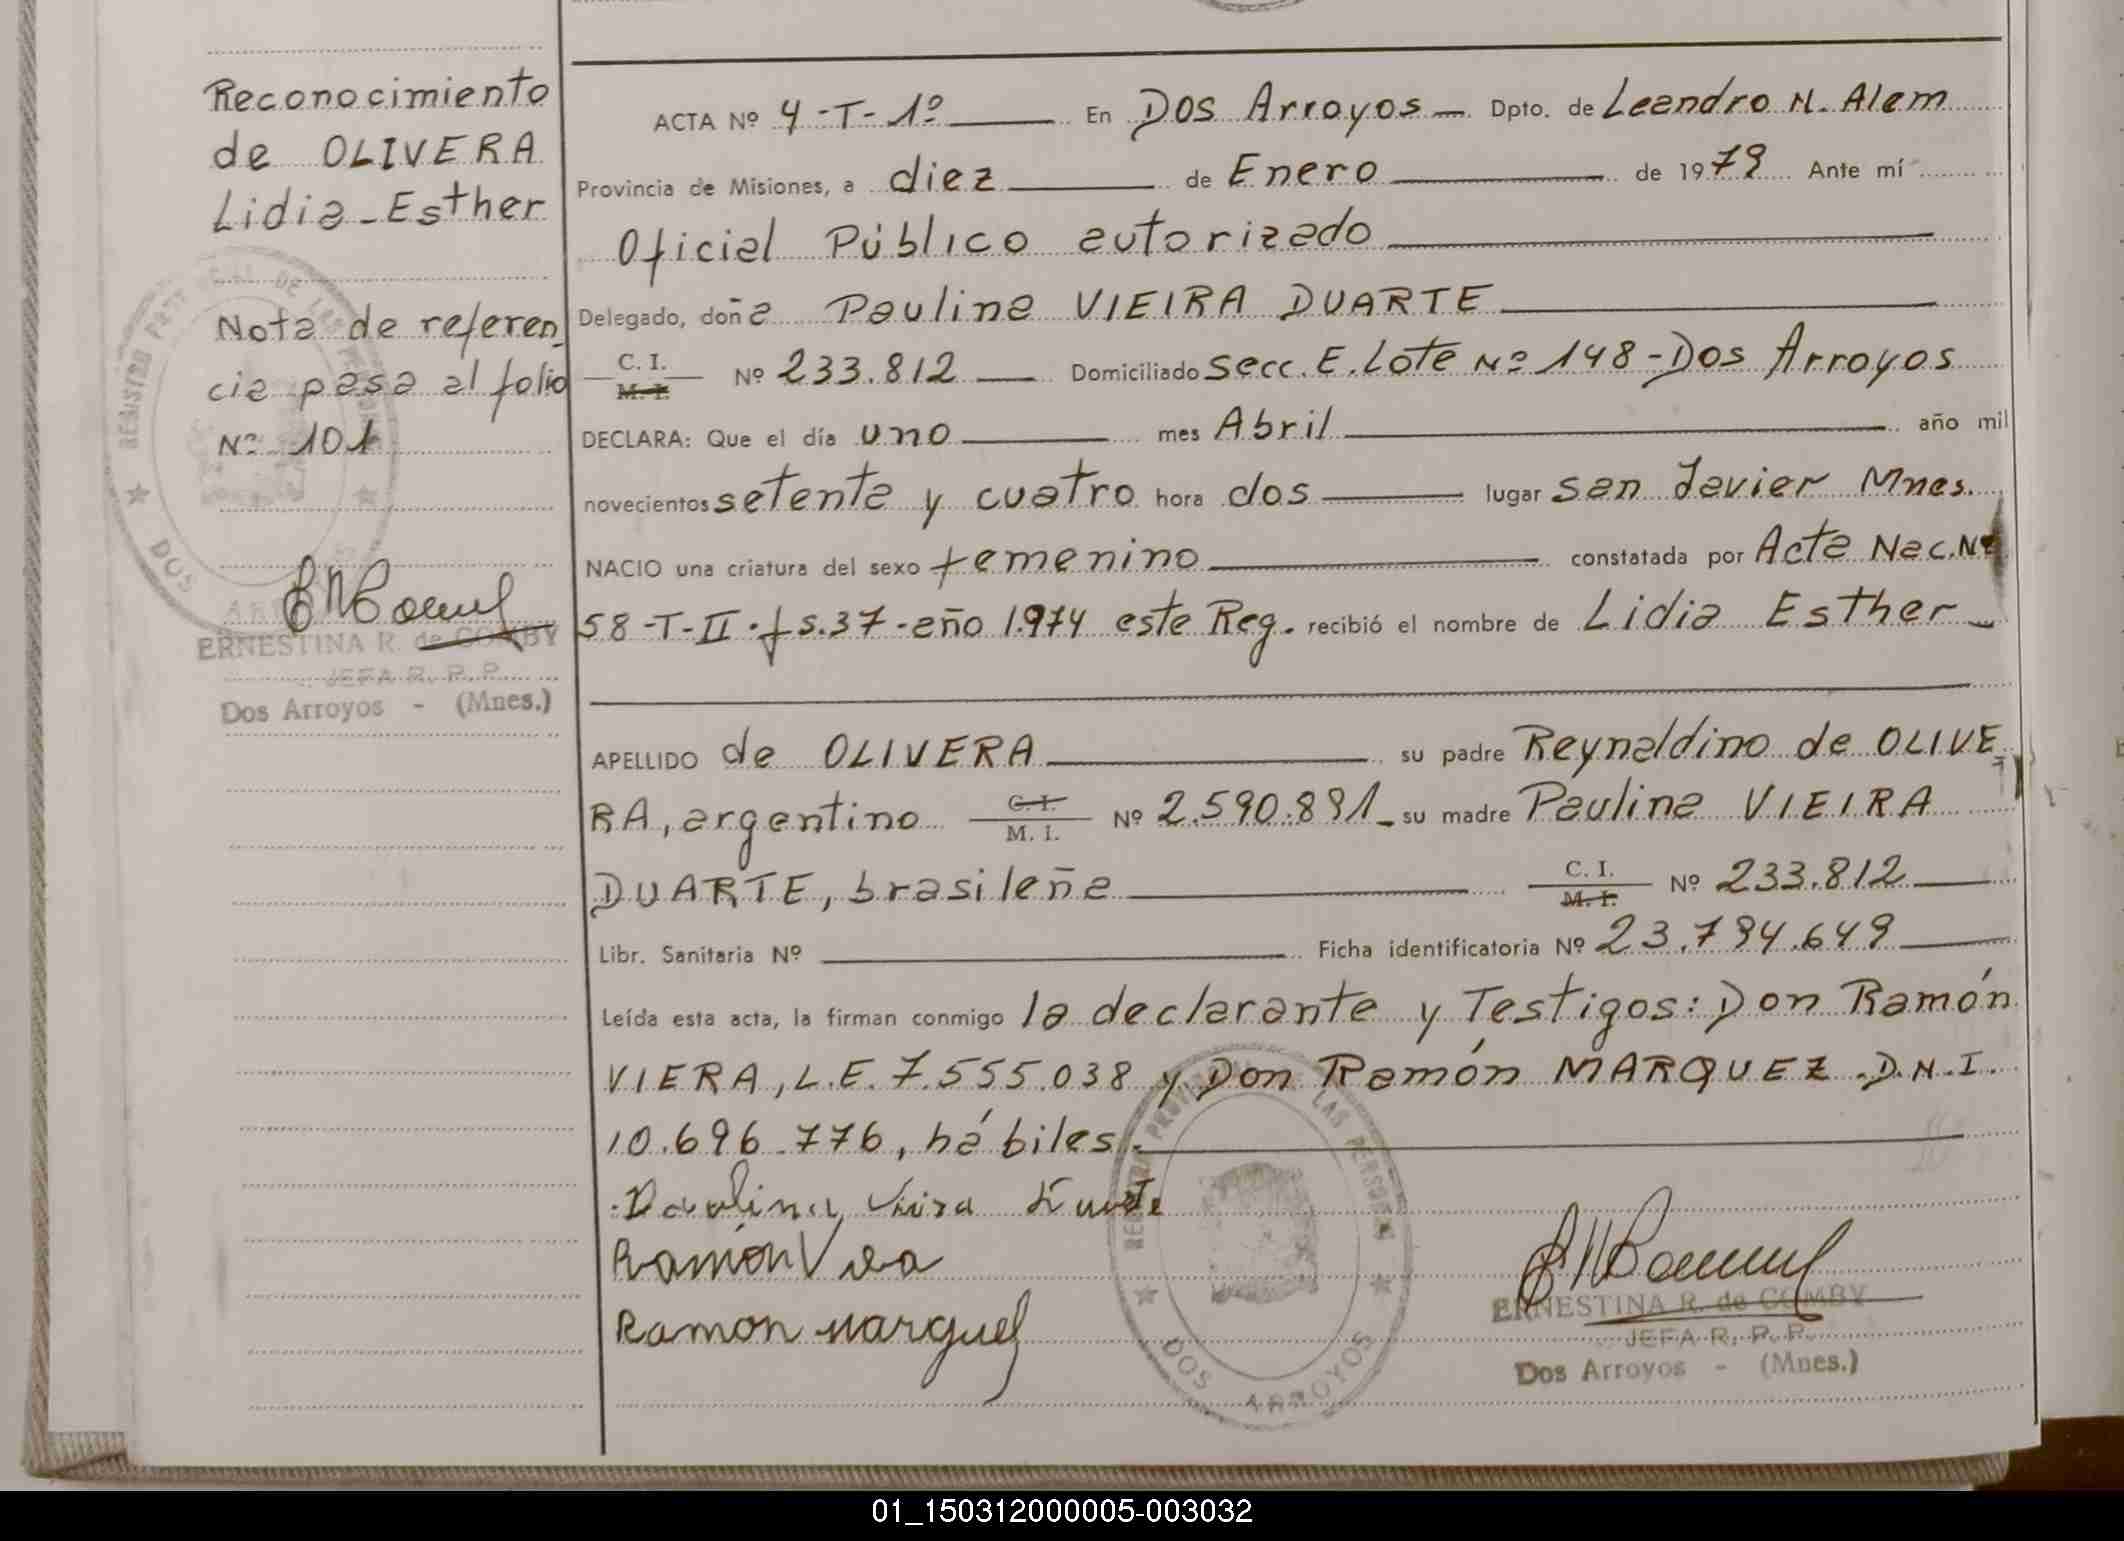 Reconocimiento
de OLIVERA
Lidia-Esther
Nota de referen
cia pasa al folio
Nº 101
ERNESTINA R. de COMBY
JEFA R. P. P.
Dos Arroyos - (Mnes.)
ACTA Nº 4-T-1º En Dos Arroyos Dpto. de Leandro N. Alem
Provincia de Misiones, a diez de Enero de 1979 Ante mí
Oficial Público autorizado
Delegado, doña Paulina VIEIRA DUARTE
C. I.
M. I. Nº 233.812 Domiciliado Secc. E. Lote Nº 148-Dos Arroyos
DECLARA: Que el día uno mes Abril año mil
novecientos setenta y cuatro hora dos lugar San Javier Mnes.
NACIO una criatura del sexo femenino constatada por Acta Nac. Nº
58-T-II-fs.37-año 1.974 este Reg. recibió el nombre de Lidia Esther
APELLIDO de OLIVERA su padre Reynaldino de OLIVE
RA, argentino C. I.
M. I. Nº 2.590.891 su madre Paulina VIEIRA
DUARTE, brasileña C. I.
M. I. Nº 233.812
Libr. Sanitaria Nº Ficha identificatoria Nº 23.794.649
Leída esta acta, la firman conmigo la declarante y Testigos: Don Ramón
VIERA, L.E. 7.555.038 y Don Ramón MARQUEZ D.N.I.
10.696.776, hábiles.
Ramón
Ramon Marquez
ERNESTINA R. de COMBY
JEFA R. P. P.
Dos Arroyos - (Mnes.)
DOS ARROYOS
01_150312000005-003032